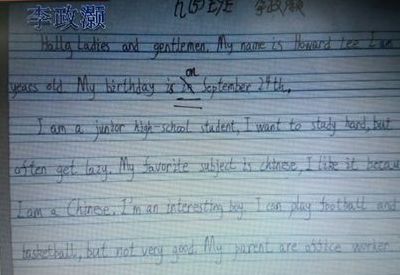 李政灏
Hallg Ladies and gentlemen. My name is Howard Lee I am
on
years old My birthday is in September 24th.
I am a junior high-school student, I want to study hard, but
often get lazy. My favorite subject is chinese, I like it becau
I am a Chinese. I'm an interesting boy. I can play football and
basketball, but not very good. My parent are office worker